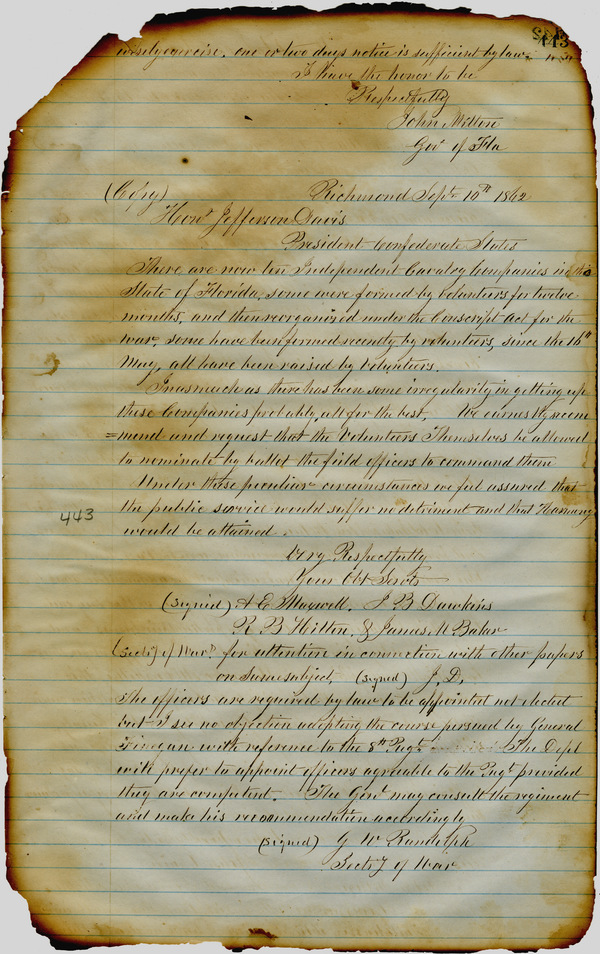 443
wisely exercise, one or two days notice is sufficient by law.
I have the honor to be
Respectfully
John Milton
Gov of Fla
(Copy) Richmond Sept 10th 1862
Honl Jefferson Davis
President Confederate States
There are now ten Independent Cavalry Companies in the
State of Florida, some were formed by volunteers for twelve
months, and then reorganized under the Conscript Act for the
war, some have been formed recently by volunteers, since the 16th
May, all have been raised by Volunteers.
Inasmuch as there has been some irregularity in getting up
these Companies probably all for the best, We earnestly recom
=mend and request that the Volunteers Themselves be allowed
to nominate by ballot the field officers to command them
Under these peculiar circumstances we feel assured that
the public service would suffer no detriment and that Harmony
would be attained.
443
Very Respectfully
Your Obt Servts
(signed) A E Maxwell, J B Dawkins
R B Hilton, & James M Baker
(Secty of War) for attention in connection with other papers
on same subject, (signed) J. D.
The officers are required by law to be appointed not elected
but I see no objection adopting the course persued by General
Finegan with reference to the 8th Regt The Dept
will prefer to appoint officers agreeable to the Regt provided
they are competent. The Genl may consult the regiment
and make his recommendation accordingly
(signed) G W Randolph
Secty of War